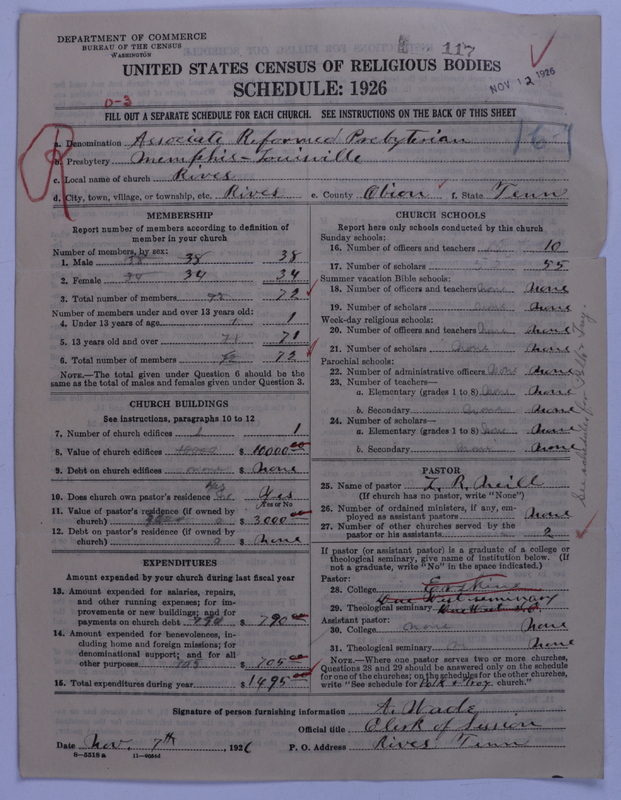 DEPARTMENT OF COMMERCE
BUREAU OF THE CENSUS
WASHINGTON
117
UNITED STATES CENSUS OF RELIGIOUS BODIES
SCHEDULE: 1926
NOV 12 1926
D-3
FILL OUT A SEPARATE SCHEDULE FOR EACH CHURCH. SEE INSTRUCTIONS ON THE BACK OF THIS SHEET
a. Denomination Associate Reformed Presbyterian
b. Presbytery Memphis-Louisville
c. Local name of church Rives
d. City, town, village, or township, etc. Rives e. County Obion f. State Tenn
MEMBERSHIP
Report number of members according to definition of
member in your church
Number of members, by sex:
1. Male 38 38
2. Female 34 34
3. Total number of members 72
Number of members under and over 13 years old:
4. Under 13 years of age 1 1
5. 13 years old and over 71 71
6. Total number of members 72 72
NOTE.—The total given under Question 6 should be
same as the total of males and females given under Question 3.
CHURCH BUILDINGS
See instructions, paragraphs 10 to 12
7. Number of church edifices 1 1
8. Value of church edifices 10000 $ 10000.00
9. Debt on church edifices none $ None
10. Does church own pastor's residence yes Yes
Yes or No
11. Value of pastor's residence (if owned by
church) $ 3000.00
12. Debt on pastor's residence (if owned by
church) 0 $ None
EXPENDITURES
Amount expended by your church during last fiscal year
13. Amount expended for salaries, repairs,
and other running expenses; for im-
provements or new buildings; and for
payments on church debt 790 $ 790.00
14. Amount expended for benevolences, in-
cluding home and foreign missions; for
denominational support; and for all
other purposes 705 $ 705.00
15. Total expenditures during year $ 1495.00
CHURCH SCHOOLS
Report here only schools conducted by this church
Sunday schools:
16. Number of officers and teachers 10
17. Number of scholars 55
Summer vacation Bible schools:
18. Number of officers and teachers none None
19. Number of scholars none None
Week-day religious schools:
20. Number of officers and teachers none None
21. Number of scholars none None
Parochial schools:
22. Number of administrative officers none None
23. Number of teachers—
a. Elementary (grades 1 to 8) none None
b. Secondary none None
24. Number of scholars—
a. Elementary (grades 1 to 8) none None
b. Secondary none None
PASTOR
25. Name of pastor T. R. Neill
(If church has no pastor, write "None")
26. Number of ordained ministers, if any, em-
ployed as assistant pastors None
27. Number of other churches served by the
pastor or his assistants 2
If pastor (or assistant pastor) is a graduate of a college or
theological seminary, give name of institution below. (If
not a graduate, write "No" in the space indicated.)
Pastor:
28. College Erskine
Due West Seminary
29. Theological seminary Due West S.C.
Assistant pastor:
30. College none None
31. Theological seminary None
NOTE.—Where one pastor serves two or more churches,
Questions 28 and 29 should be answered only on the schedule
for one of the churches; on the schedules for the other churches,
write "See schedule for Polk & Troy church."
See schedules for Polk & Troy.
Signature of person furnishing information A. Wade
Official title Clerk of Session
Date Nov. 7th, 1926 P. O. Address Rives Tenn
8—5318 a